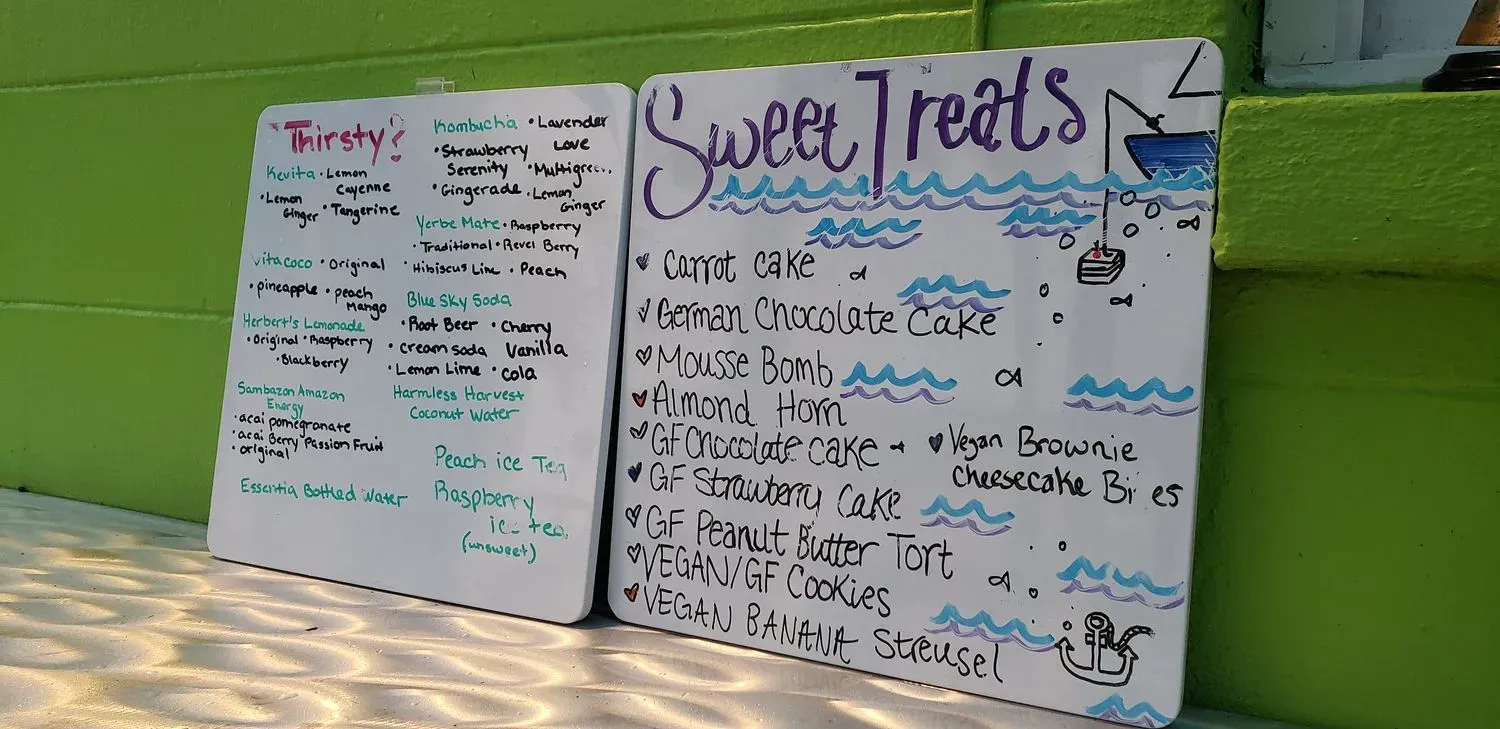 Thirsty?
Kevita • Lemon
Cayenne
• Lemon
Ginger • Tangerine
Vitacoco • Original
• pineapple • peach
Mango
Herbert's Lemonade
• Original • Raspberry
• Blackberry
Sambazon Amazon
Energy
• acai pomegranate
• acai Berry Passion Fruit
• original
Essentia Bottled Water
Kombucha • Lavender
Love
• Strawberry
Serenity • Multigree
• Gingerade • Lemon
Ginger
Yerbe Mate • Raspberry
• Traditional • Revel Berry
• Hibiscus Lime • Peach
Blue Sky Soda
• Root Beer • Cherry
• cream soda Vanilla
• Lemon Lime • cola
Harmless Harvest
Coconut Water
Peach ice Tea
Raspberry
ice tea
(unsweet)
Sweet Treats
Carrot cake
German Chocolate Cake
Mousse Bomb
Almond Horn
GF Chocolate cake
GF Strawberry Cake
GF Peanut Butter Tort
VEGAN/GF Cookies
VEGAN BANANA Streusel
Vegan Brownie
cheesecake Bi es